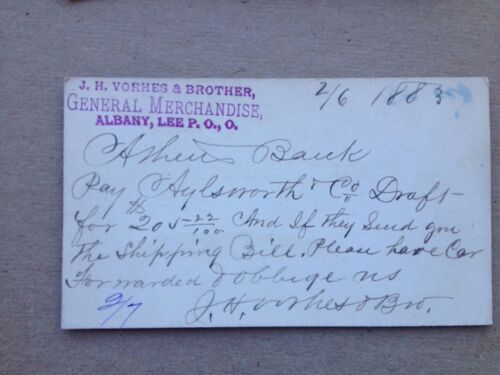 J. H. VORHES & BROTHER,
GENERAL MERCHANDISE,
ALBANY, LEE P. O., O.
2/6 1883
Athens Bank
Pay Aylsworth & Co Draft
for $205 22/100 And If they Send you
the Shipping Bill. Please have Car
Forwarded & obbige us
J. H. Vorhes & Bro.
2/7